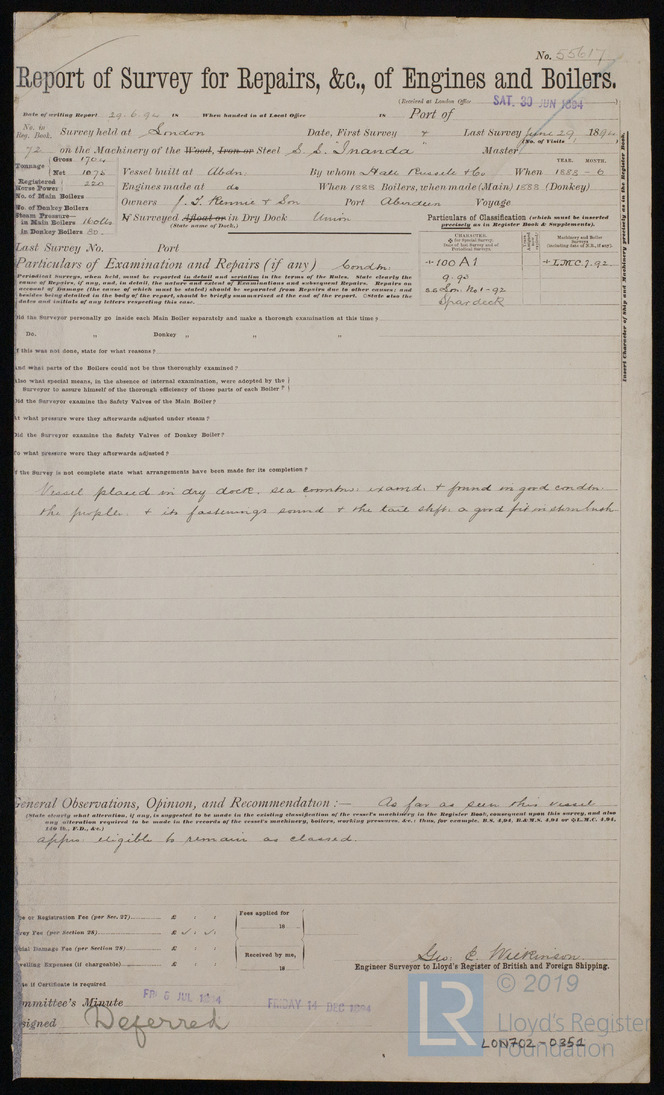 No. 55617
Report of Survey for Repairs, &c., of Engines and Boilers.
(Received at London Office SAT. 30 JUN 1894)
Date of writing Report 29.6.94 18 When handed in at Local Office 18 Port of
No. in Reg. Book. Survey held at London Date, First Survey Last Survey June 29, 1894
(No. of Visits)
72 on the Machinery of the Wood, Iron or Steel S. S. Inanda Master
Tonnage Gross 1704 Net 1072
Vessel built at Abdn. By whom Hall Russell & Co When 1888 - 6
YEAR. MONTH.
Registered Horse Power 220
Engines made at do When 1888 Boilers, when made (Main) 1888 (Donkey)
No. of Main Boilers
Owners J. T. Rennie & Son Port Aberdeen Voyage
No. of Donkey Boilers
Steam Pressure—
in Main Boilers 160 lbs
in Donkey Boilers 80.
If Surveyed Afloat or in Dry Dock Union
(State name of Dock.)
Particulars of Classification (which must be inserted precisely as in Register Book & Supplements).
Last Survey No. Port
CHARACTER.
Machinery and Boiler Surveys (including date of N.B., if any).
+100 A1
+L.M.C. 7.92
9.92
Lon. No 1-92
Spardeck
Particulars of Examination and Repairs (if any) Condn.
Periodical Surveys, when held, must be reported in detail and seriatim in the terms of the Rules. State clearly the
cause of Repairs, if any, and, in detail, the nature and extent of Examinations and subsequent Repairs. Repairs on
account of Damage (the cause of which must be stated) should be separated from Repairs due to other causes; and
besides being detailed in the body of the report, should be briefly summarised at the end of the report. State also the
dates and initials of any letters respecting this case.
Insert Character of Ship and Machinery precisely as in the Register Book.
Did the Surveyor personally go inside each Main Boiler separately and make a thorough examination at this time?
Do. „ Donkey „ „ „
If this was not done, state for what reasons?
And what parts of the Boilers could not be thus thoroughly examined?
Also what special means, in the absence of internal examination, were adopted by the
Surveyor to assure himself of the thorough efficiency of those parts of each Boiler?
Did the Surveyor examine the Safety Valves of the Main Boiler?
At what pressure were they afterwards adjusted under steam?
Did the Surveyor examine the Safety Valves of Donkey Boiler?
To what pressure were they afterwards adjusted?
If the Survey is not complete state what arrangements have been made for its completion?
Vessel placed in dry dock. sea conntns: examd: & found in good condtn.
the proplr: & its fastenings sound & the tail shft: a good fit in stern bush
General Observations, Opinion, and Recommendation :— As far as seen this vessel
(State clearly what alteration, if any, is suggested to be made in the existing classification of the vessel's machinery in the Register Book, consequent upon this survey, and also
any alteration required to be made in the records of the vessel's machinery, boilers, working pressures, &c.; thus, for example, B.S. 4,94, B.&M.S. 4,94 or L.M.C. 4,94,
140 lb., F.D., &c.)
appears eligible to remain as classed.
or Registration Fee (per Sec. 27) £ : :
Fees applied for
18
vey Fee (per Section 28) £ : :
Damage Fee (per Section 28) £ : :
Received by me,
18
velling Expenses (if chargeable) £ : :
Geo: E. Wilkinson
Engineer Surveyor to Lloyd's Register of British and Foreign Shipping.
if Certificate is required
mmittee's Minute FRI 6 JUL 1894 FRIDAY 14 DEC 1894
signed Deferred
© 2019
LR
Lloyd's Register
Foundation
LON702-0351